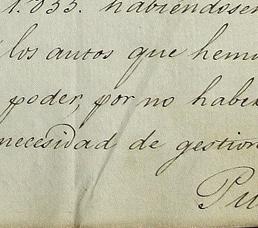 1.833. habiéndosen
los autos que hemo
poder, por no haber
necesidad de gestion
Pu